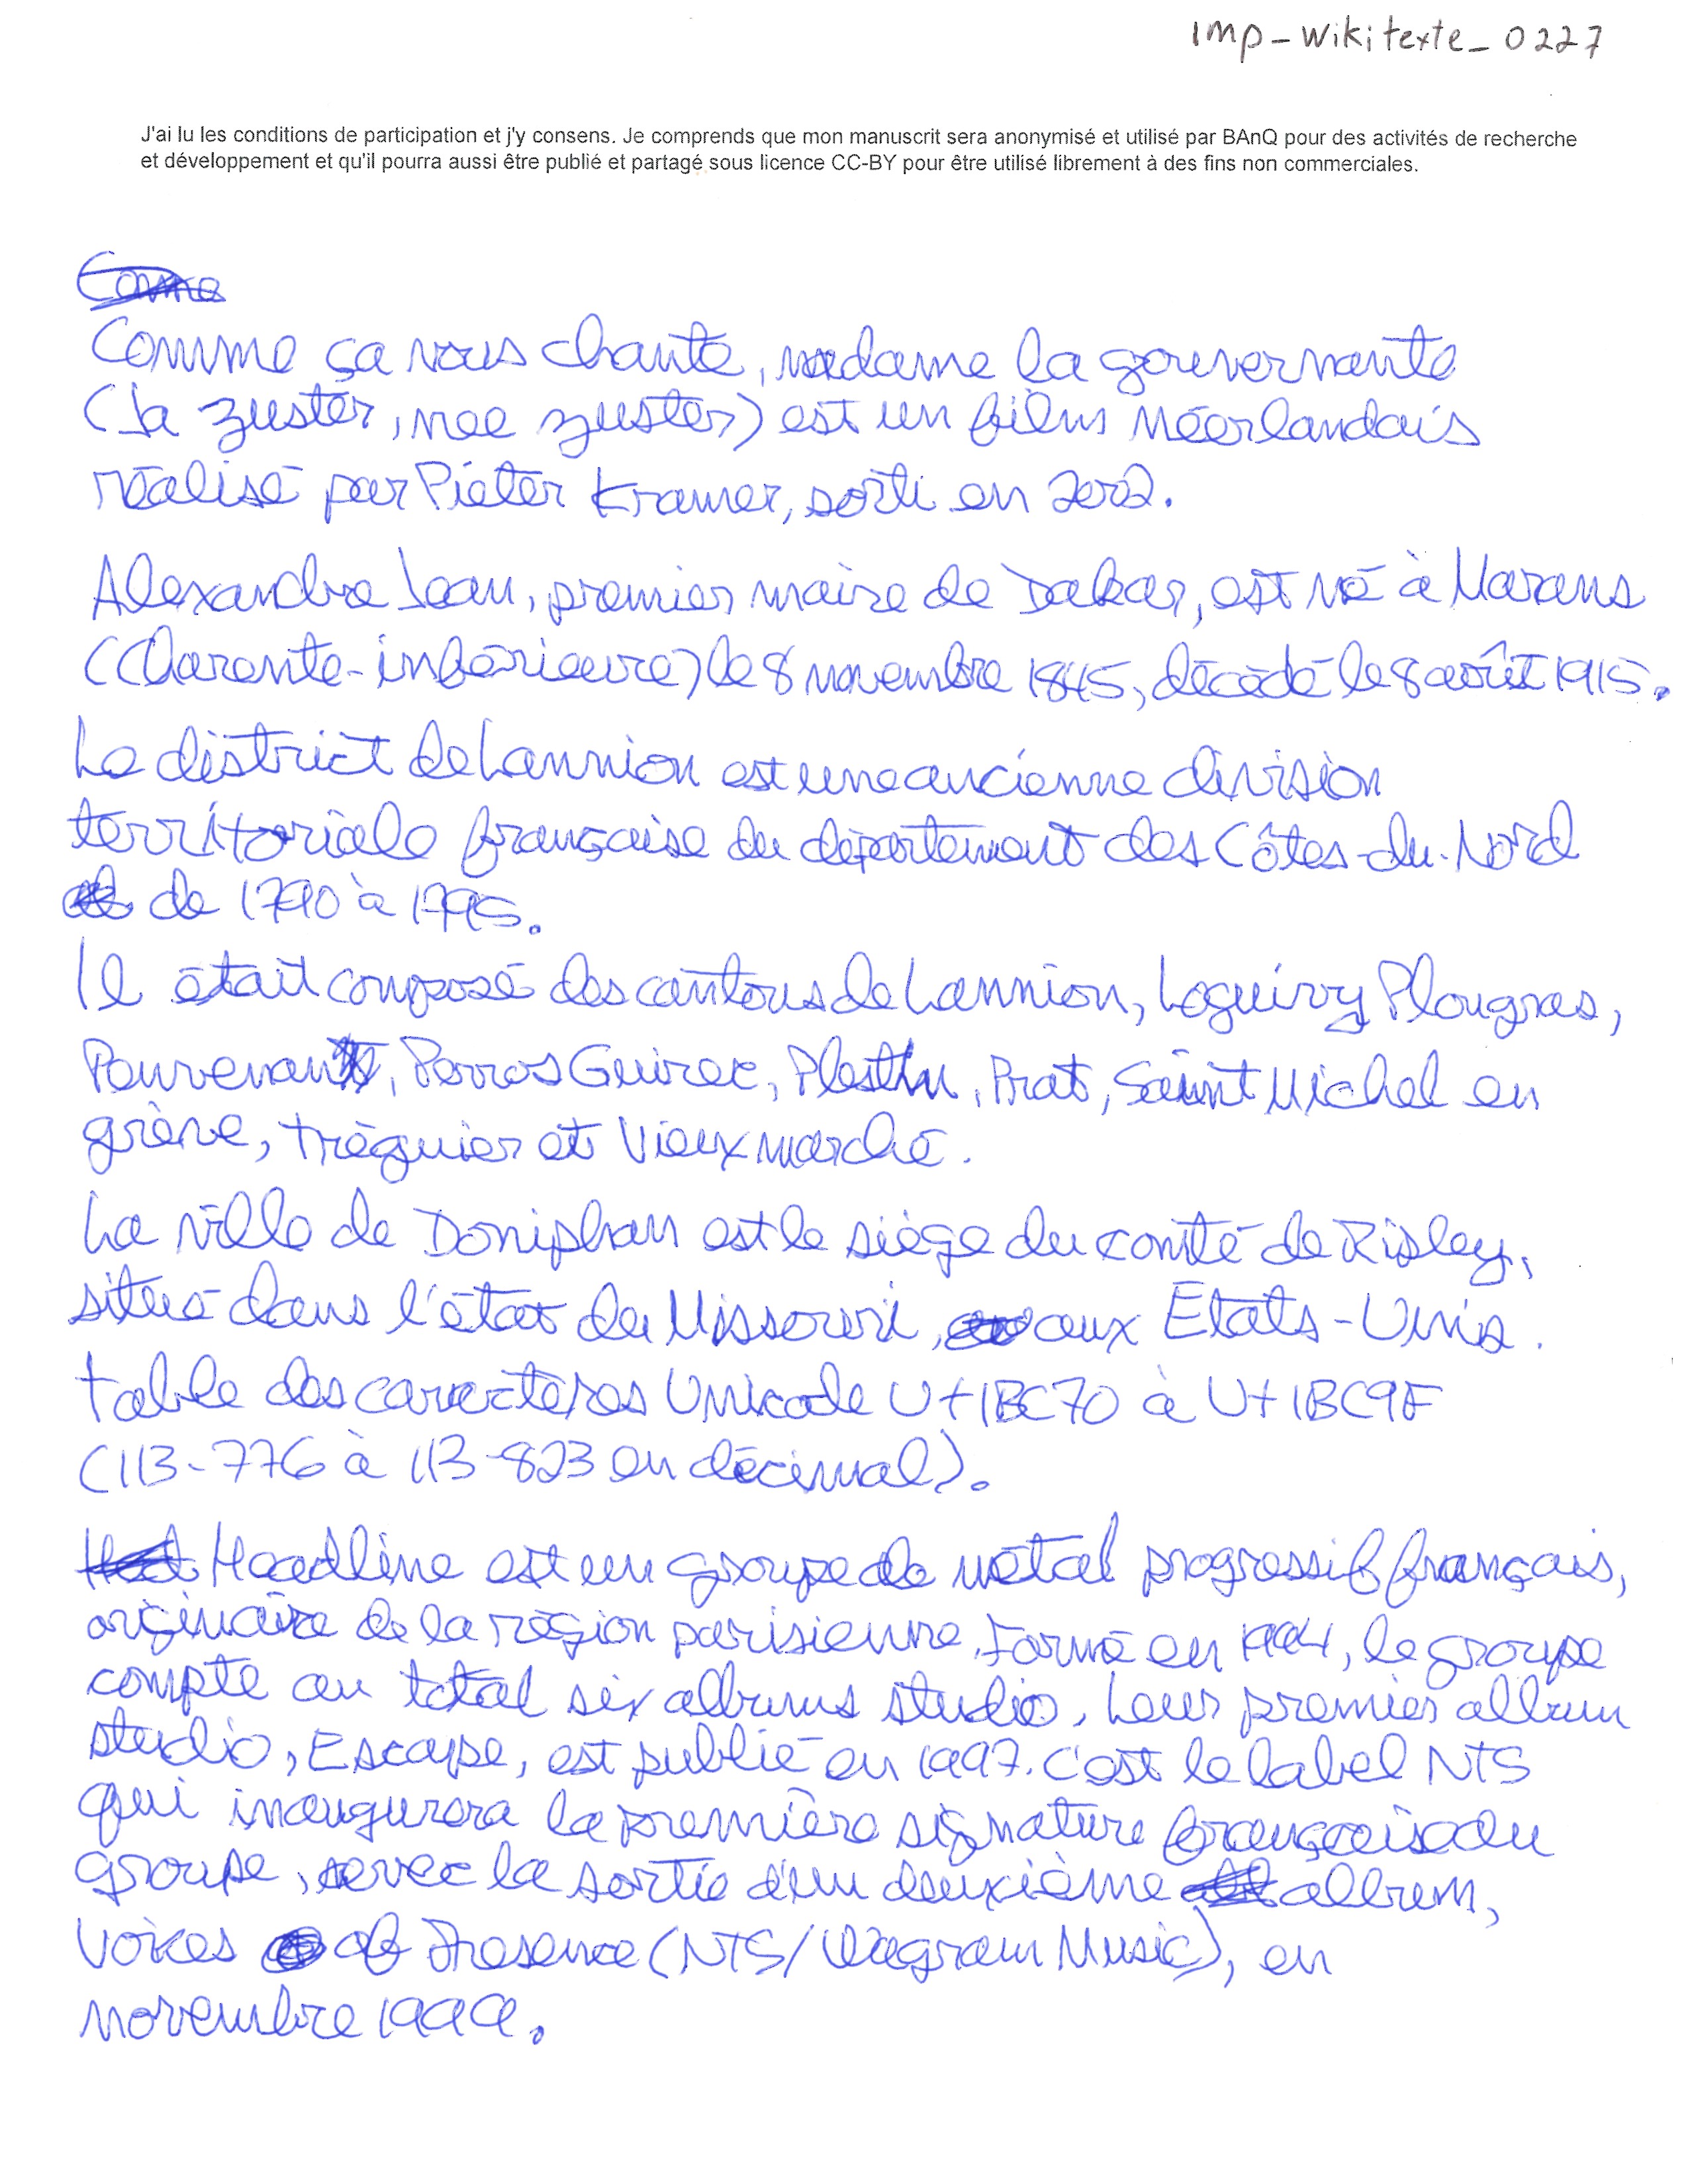 Imp-wikitexte_0227
J'ai lu les conditions de participation et j'y consens. Je comprends que mon manuscrit sera anonymisé et utilisé par BAnQ pour des activités de recherche
et développement et qu'il pourra aussi être publié et partagé sous licence CC-BY pour être utilisé librement à des fins non commerciales.
Comme ça vous chante, madame la gouvernante
(Ja zuster, nee zuster) est un film Néerlandais
réalisé par Pieter Kramer, sorti en 2002.
Alexandre Jean, premier maire de Dakar, est né à Marans
(Charente-inférieure) le 8 novembre 1845, décédé le 8 août 1915.
Le district de Lannion est une ancienne division
territoriale française du département des Côtes-du-Nord
de 1790 à 1795.
Il était composé des cantons de Lannion, Loguivy Plougras,
Penvenan, Perros Guirec, Plestin, Prat, Saint Michel en
grève, Tréguier et Vieux marché.
La ville de Doniphan est le siège du comté de Ripley,
situé dans l'état du Missouri, aux Etats-Unis.
Table des caractères Unicode U+1BC70 à U+1BC9F
(113-776 à 113-823 en décimal).
Headline est un groupe de métal progressif français,
originaire de la région parisienne. Formé en 1994, le groupe
compte au total six albums studio. Leur premier album
studio, Escape, est publié en 1997. C'est le label NTS
qui inaugurera la première signature française du
groupe, avec la sortie d'un deuxième album,
Voices of Presence (NTS/Wagram Music), en
novembre 1999.